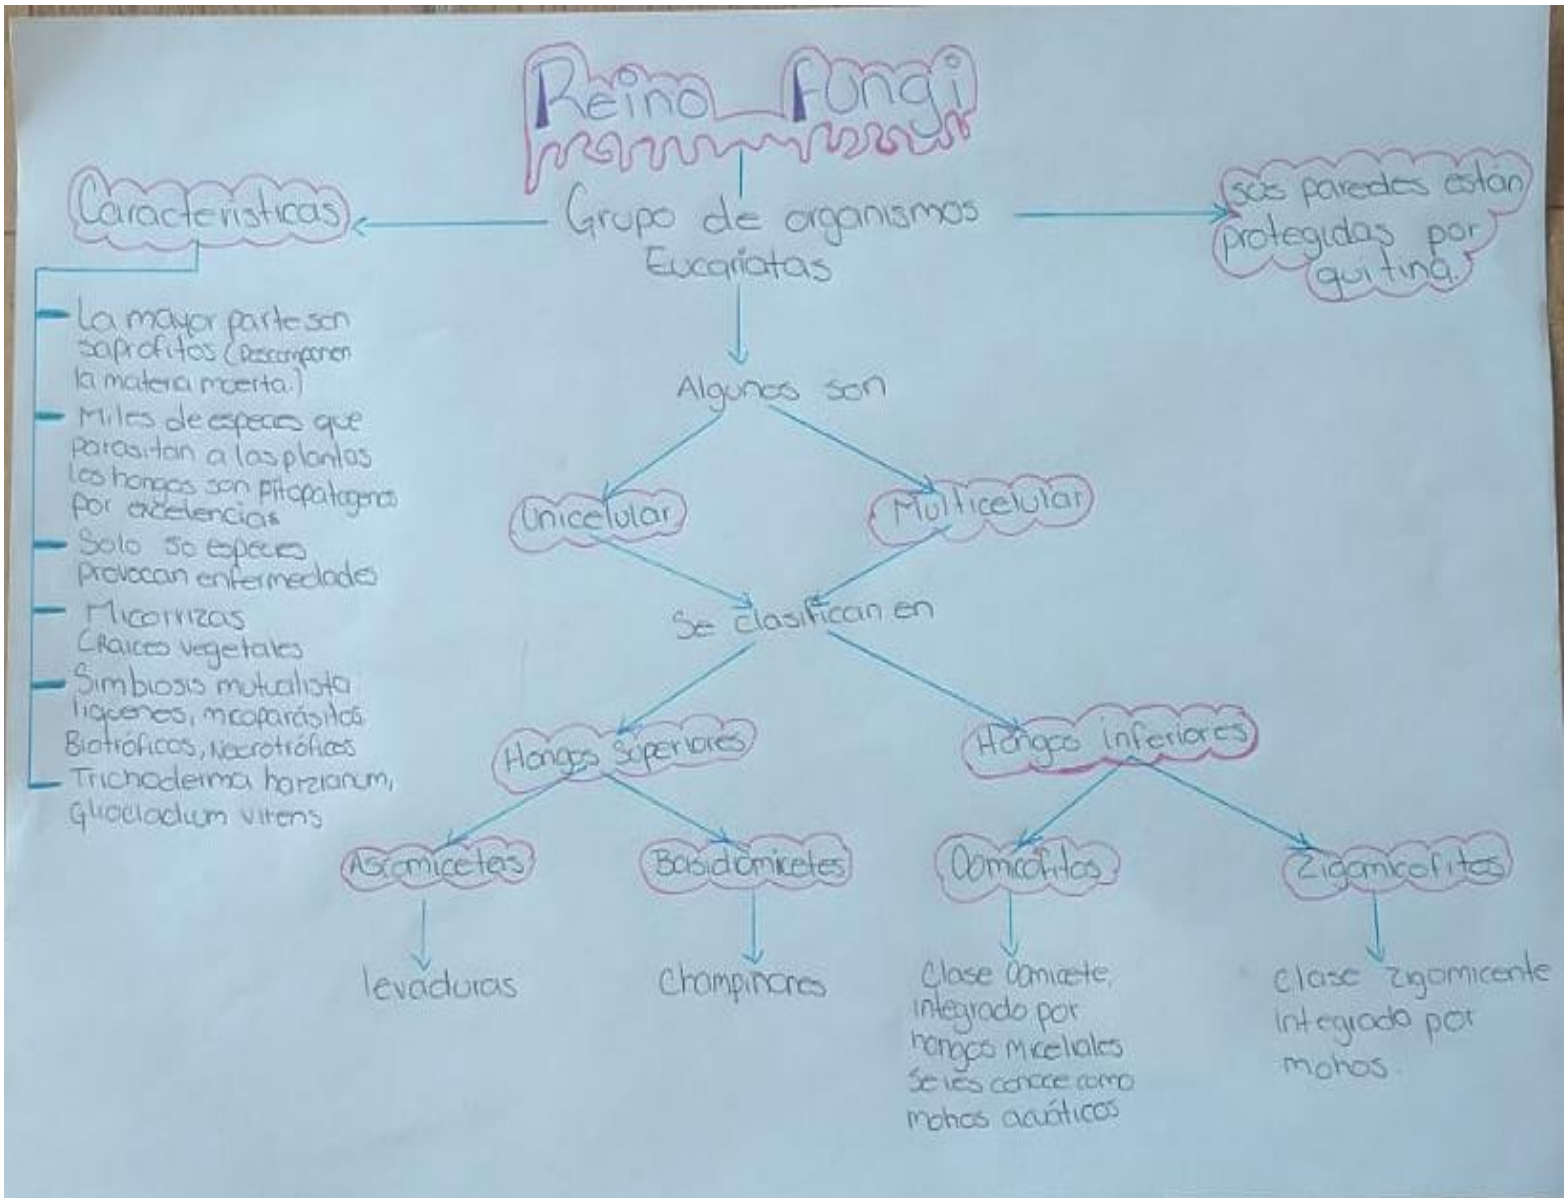 Reino Fungi
Grupo de organismos
Eucariotas
Caracteristicas
La mayor parte son
saprofitos (Descomponen
la matera muerta.)
Miles de especies que
parasitan a las plantas
los hongos son Fitopatogenos
por excelencias
Solo 50 especies
provocan enfermedades
Micorrizas
(Raices vegetales
Simbiosis mutualista
liquenes, micoparásitos
Biotróficos, Necrotróficos
Trichoderma harzianum,
Gliocladium virens
sus paredes están
protegidas por
quitina.
Algunos son
Unicelular
Multicelular
Se clasifican en
Hongos Superiores
Hongos inferiores
Ascomicetes
Basidomicetes
Oomicofitos
Zigomicofitos
levaduras
Champiñones
Clase Oomicete,
integrado por
hongos miceliales
Se les conoce como
mohos acuáticos
Clase Zigomicente
integrado por
mohos.